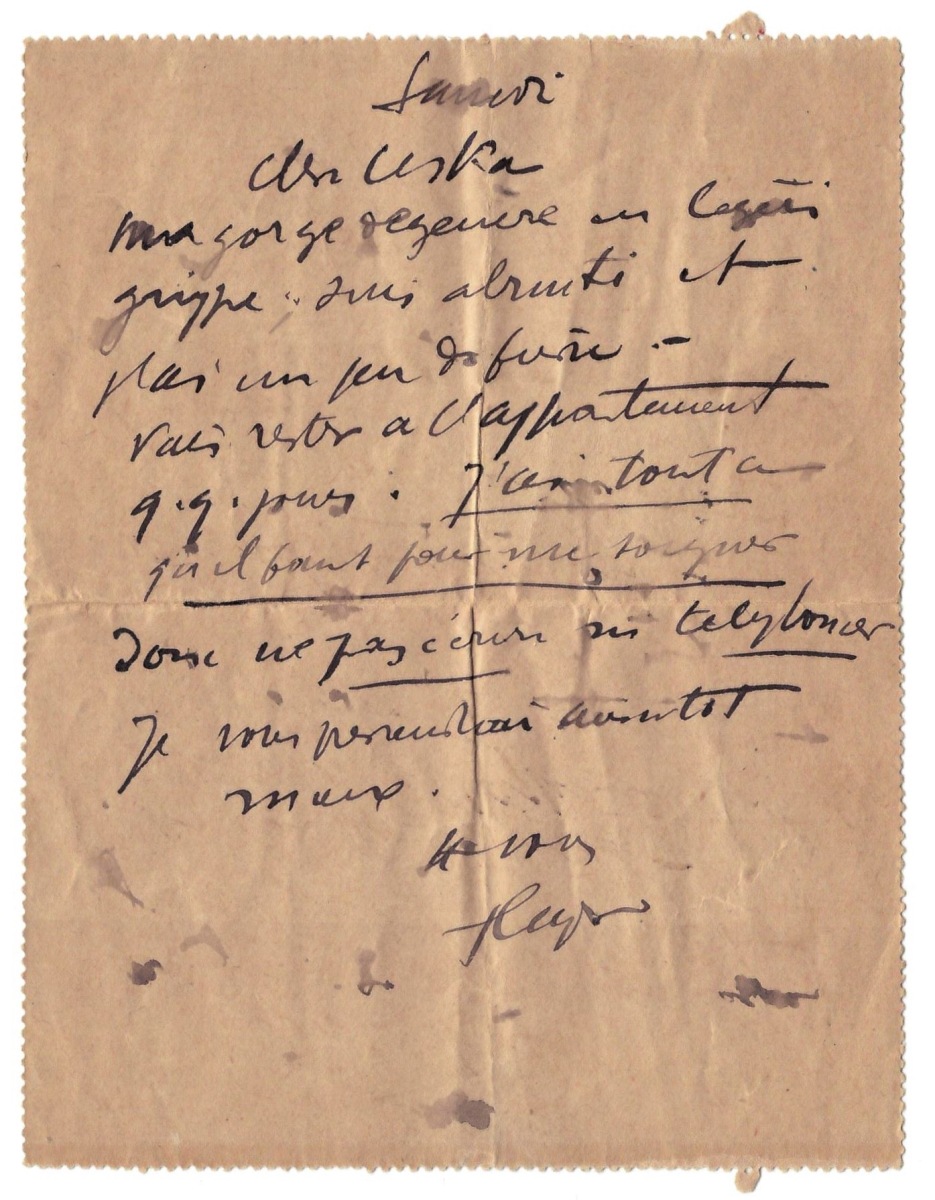 Samedi
Cher Ceska
ma gorge degenere en legère
grippe. suis abruti et
j'ai un peu de fievre -
Vais rester a l'appartement
q.q. jours. J'ai tout ce
qu'il faut pour me soigner
donc ne pas écrire ni telephoner
Je vous previendrai aussitot
mieux.
a vous